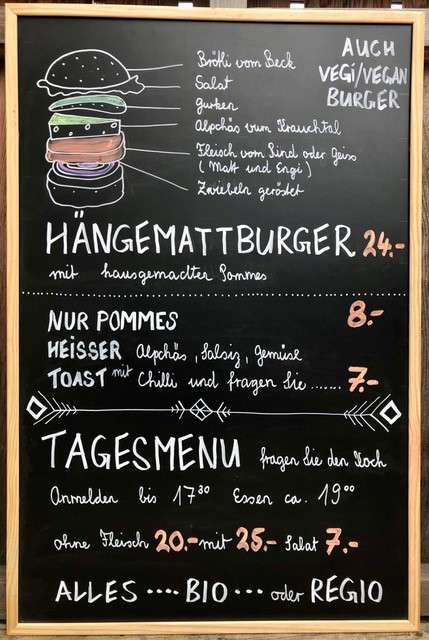 AUCH
VEGI/VEGAN
BURGER
Brötli vom Beck
Salat
Gurken
Alpchäs vum Krauchtal
Fleisch vom Rind oder Geiss
(Matt und Engi)
Zwiebeln geröstet
HÄNGEMATTBURGER 24.-
mit hausgemachten Pommes
NUR POMMES 8.-
HEISSER Alpchäs, Salsiz, Gemüse
TOAST mit Chilli und fragen Sie ....... 7.-
TAGESMENU fragen Sie den Koch
Anmelden bis 17³⁰ Essen ca. 19⁰⁰
ohne Fleisch 20.- mit 25.- Salat 7.-
ALLES .... BIO ... oder REGIO